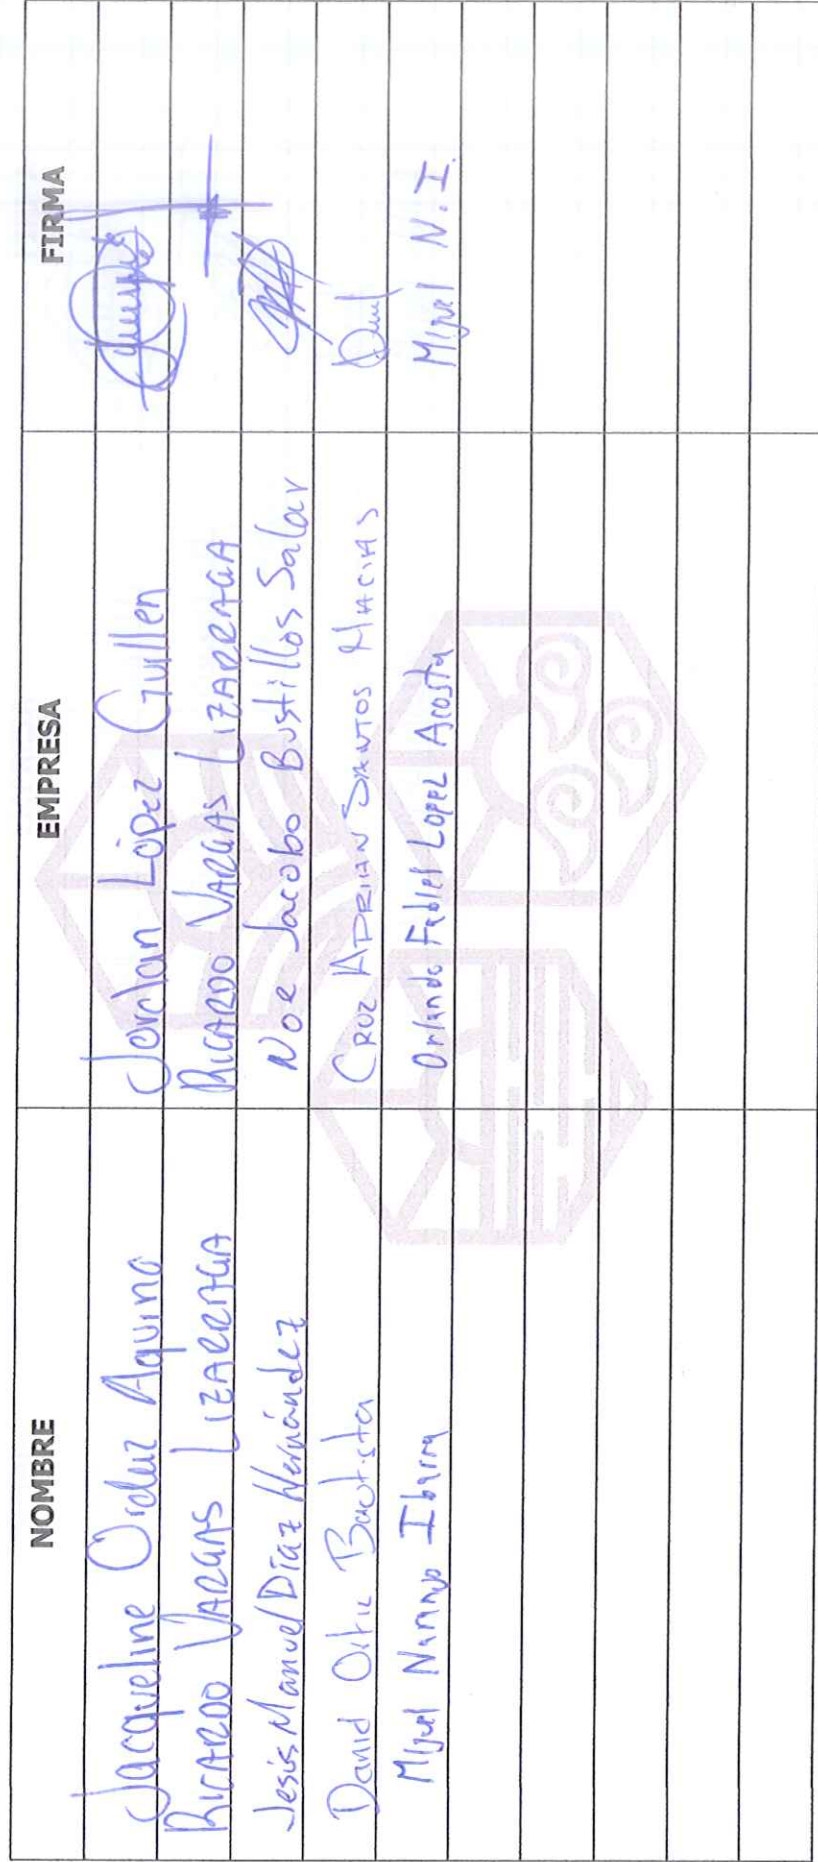 NOMBRE EMPRESA FIRMA
Jacqueline Orduz Aquino Jordan López Guillen
RICARDO VARGAS LIZARRAGA RICARDO VARGAS LIZARRAGA
Jesús Manuel Díaz Hernández Noe Jacobo Bustillos Salar
David Bautista CRUZ ADRIAN SANTOS MACIAS
Miguel Naranjo Ibarra Orlando Lopez Acosta Miguel N.I.